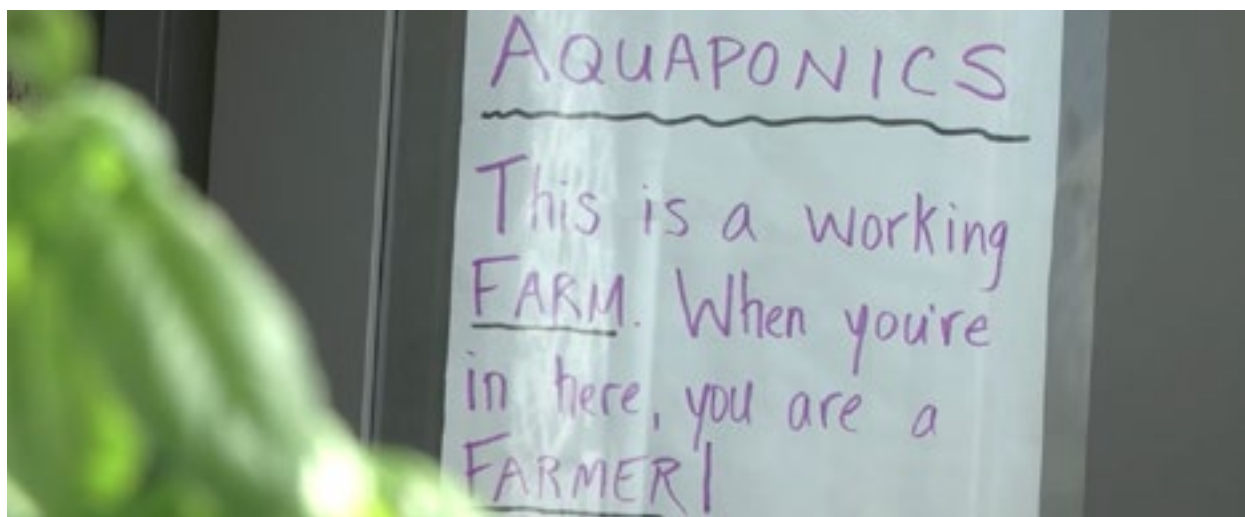 AQUAPONICS
This is a working
FARM. When you're
in here, you are a
FARMER!